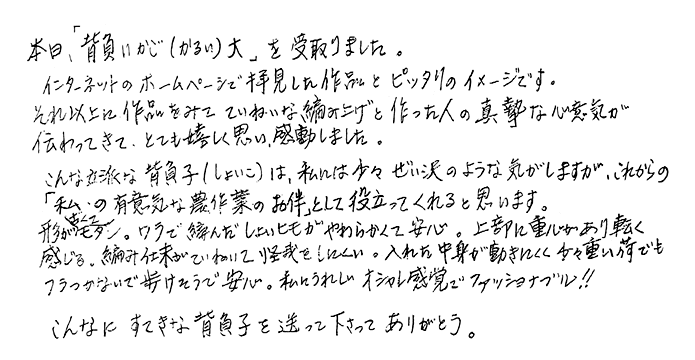 本日、「背負いかご(かるい)大」を受取りました。
インターネットのホームページで拝見した作品とピッタリのイメージです。
それ以上に作品をみて ていねいな編み上げと作った人の真摯な心意気が
伝わってきて、とても嬉しく思い、感動しました。
こんな立派な背負子(しょいこ)は、私には少々ぜい沢のような気がしますが、これからの
「私」の有意気な農作業のお伴として役立ってくれると思います。
形がとてもモダン。ワラで編んだしょいヒモがやわらかくて安心。上部に重心があり軽く
感じる。編み仕末がていねいで怪我をしにくい。入れた中身が動きにくく少々重い荷でも
フラつかないで歩けそうで安心。私にうれしいオシャレ感覚でファッショナブル!!
こんなに すてきな背負子を送って下さってありがとう。